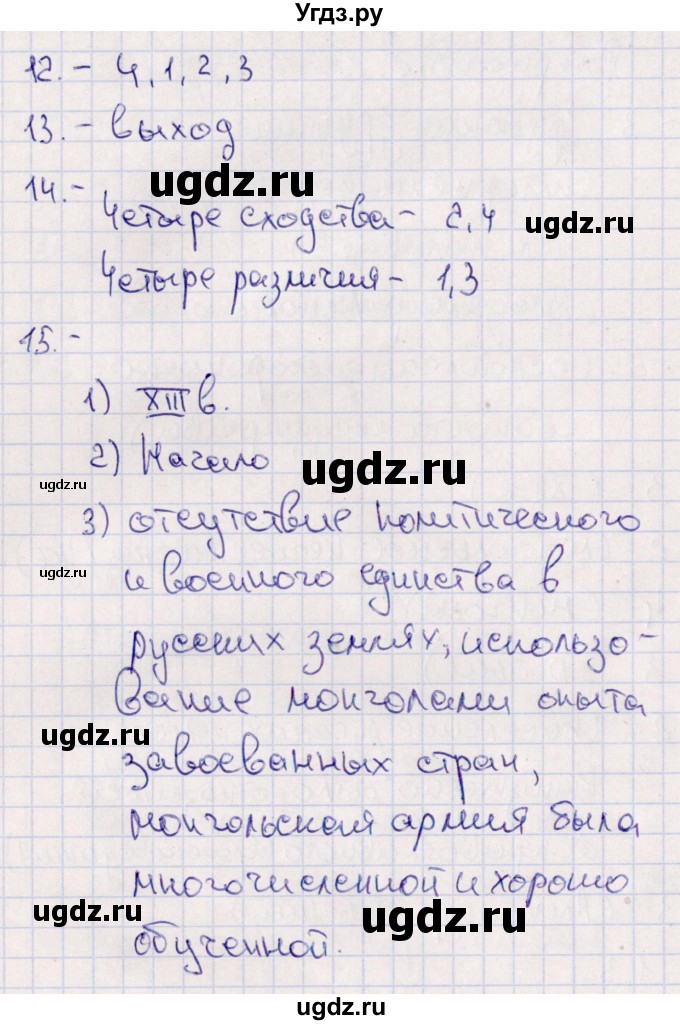 Угдз.ру
12. - 4, 1, 2, 3
13. - выход
14. -
ugdz.ru
Четыре сходства - 2, 4
ugdz.ru
Четыре различия - 1,3
15. -
1) XIII в.
2) Начало
ugdz.ru
ugdz.ru
3) отсутствие политического
и военного единства в
ugdz.ru
русских землях, использо-
вание монголами опыта
ugdz.ru
завоеванных стран,
монгольская армия была
многочисленной и хорошо
ugdz.ru
ugdz.ru
обученной.
ugdz.ru